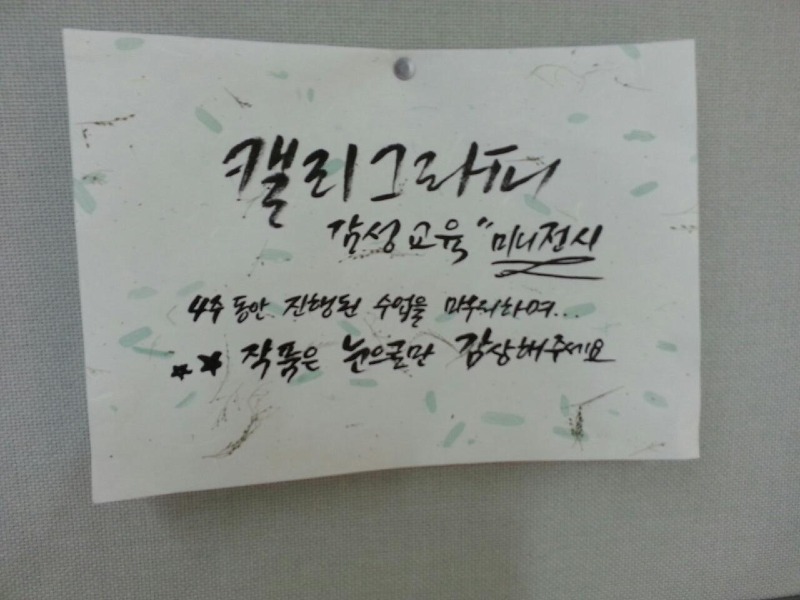 캘리그라피
감성교육 "미니전시
4주 동안 진행된 수업을 마무리하며...
★★ 작품은 눈으로만 감상해주세요